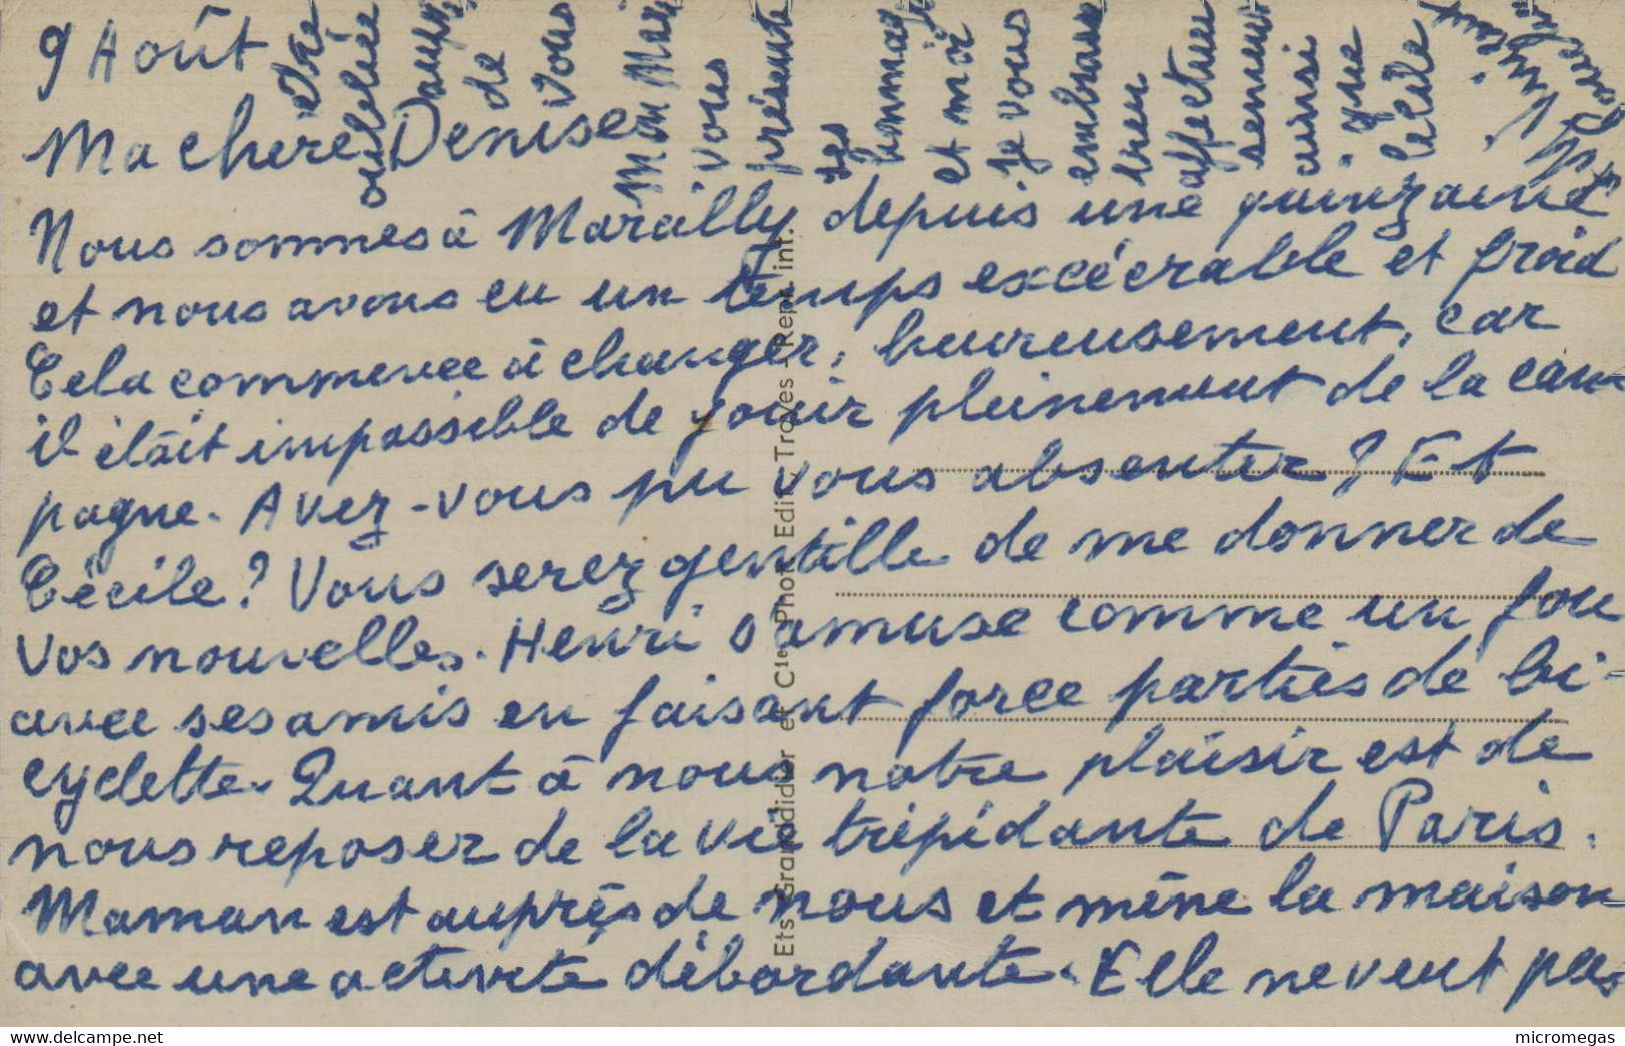 9 Août
Ma chère Denise
Nous sommes à Marcilly depuis une quinzaine
et nous avons eu un temps excécrable et froid
Cela commence à changer, heureusement, car
il était impossible de jouir pleinement de la cam-
pagne. Avez-vous pu vous absenter ? Et
Cécile ? Vous serez gentille de me donner de
vos nouvelles. Henri s'amuse comme un fou
avec ses amis en faisant force parties de bi-
cyclette. Quant à nous notre plaisir est de
nous reposer de la vie trépidante de Paris.
Maman est auprès de nous et mène la maison
avec une activité débordante. Elle ne veut pas
être
oubliée
auprès
de
vous
Mon Mari
vous
présente
ses
hommages
et moi
je vous
embrasse
bien
affectueu
sement
ainsi
que
Cécile
Ets Grandidier et Cie Phot. Edit. Troyes - Repr. int.
delcampe.net
micromegas